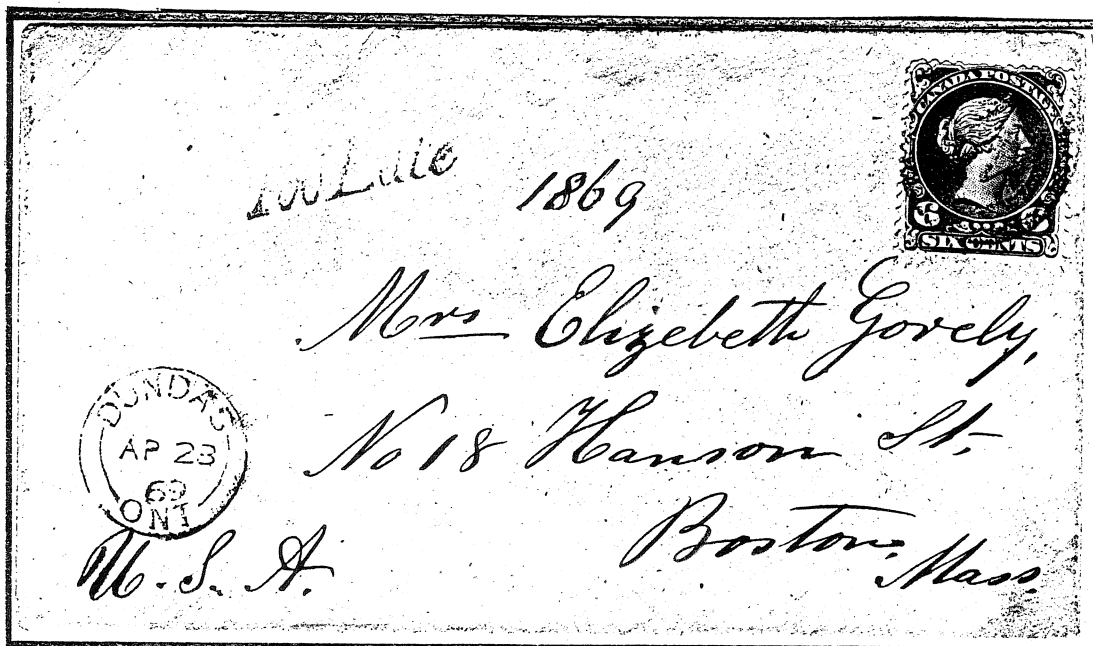 CANADA POSTAGE
6 6
SIX CENTS
Too Late
1869
Mrs Elizebeth Gorely,
No 18 Hanson St,
Boston, Mass.
U. S. A.
DUNDAS
AP 23
69
ONT